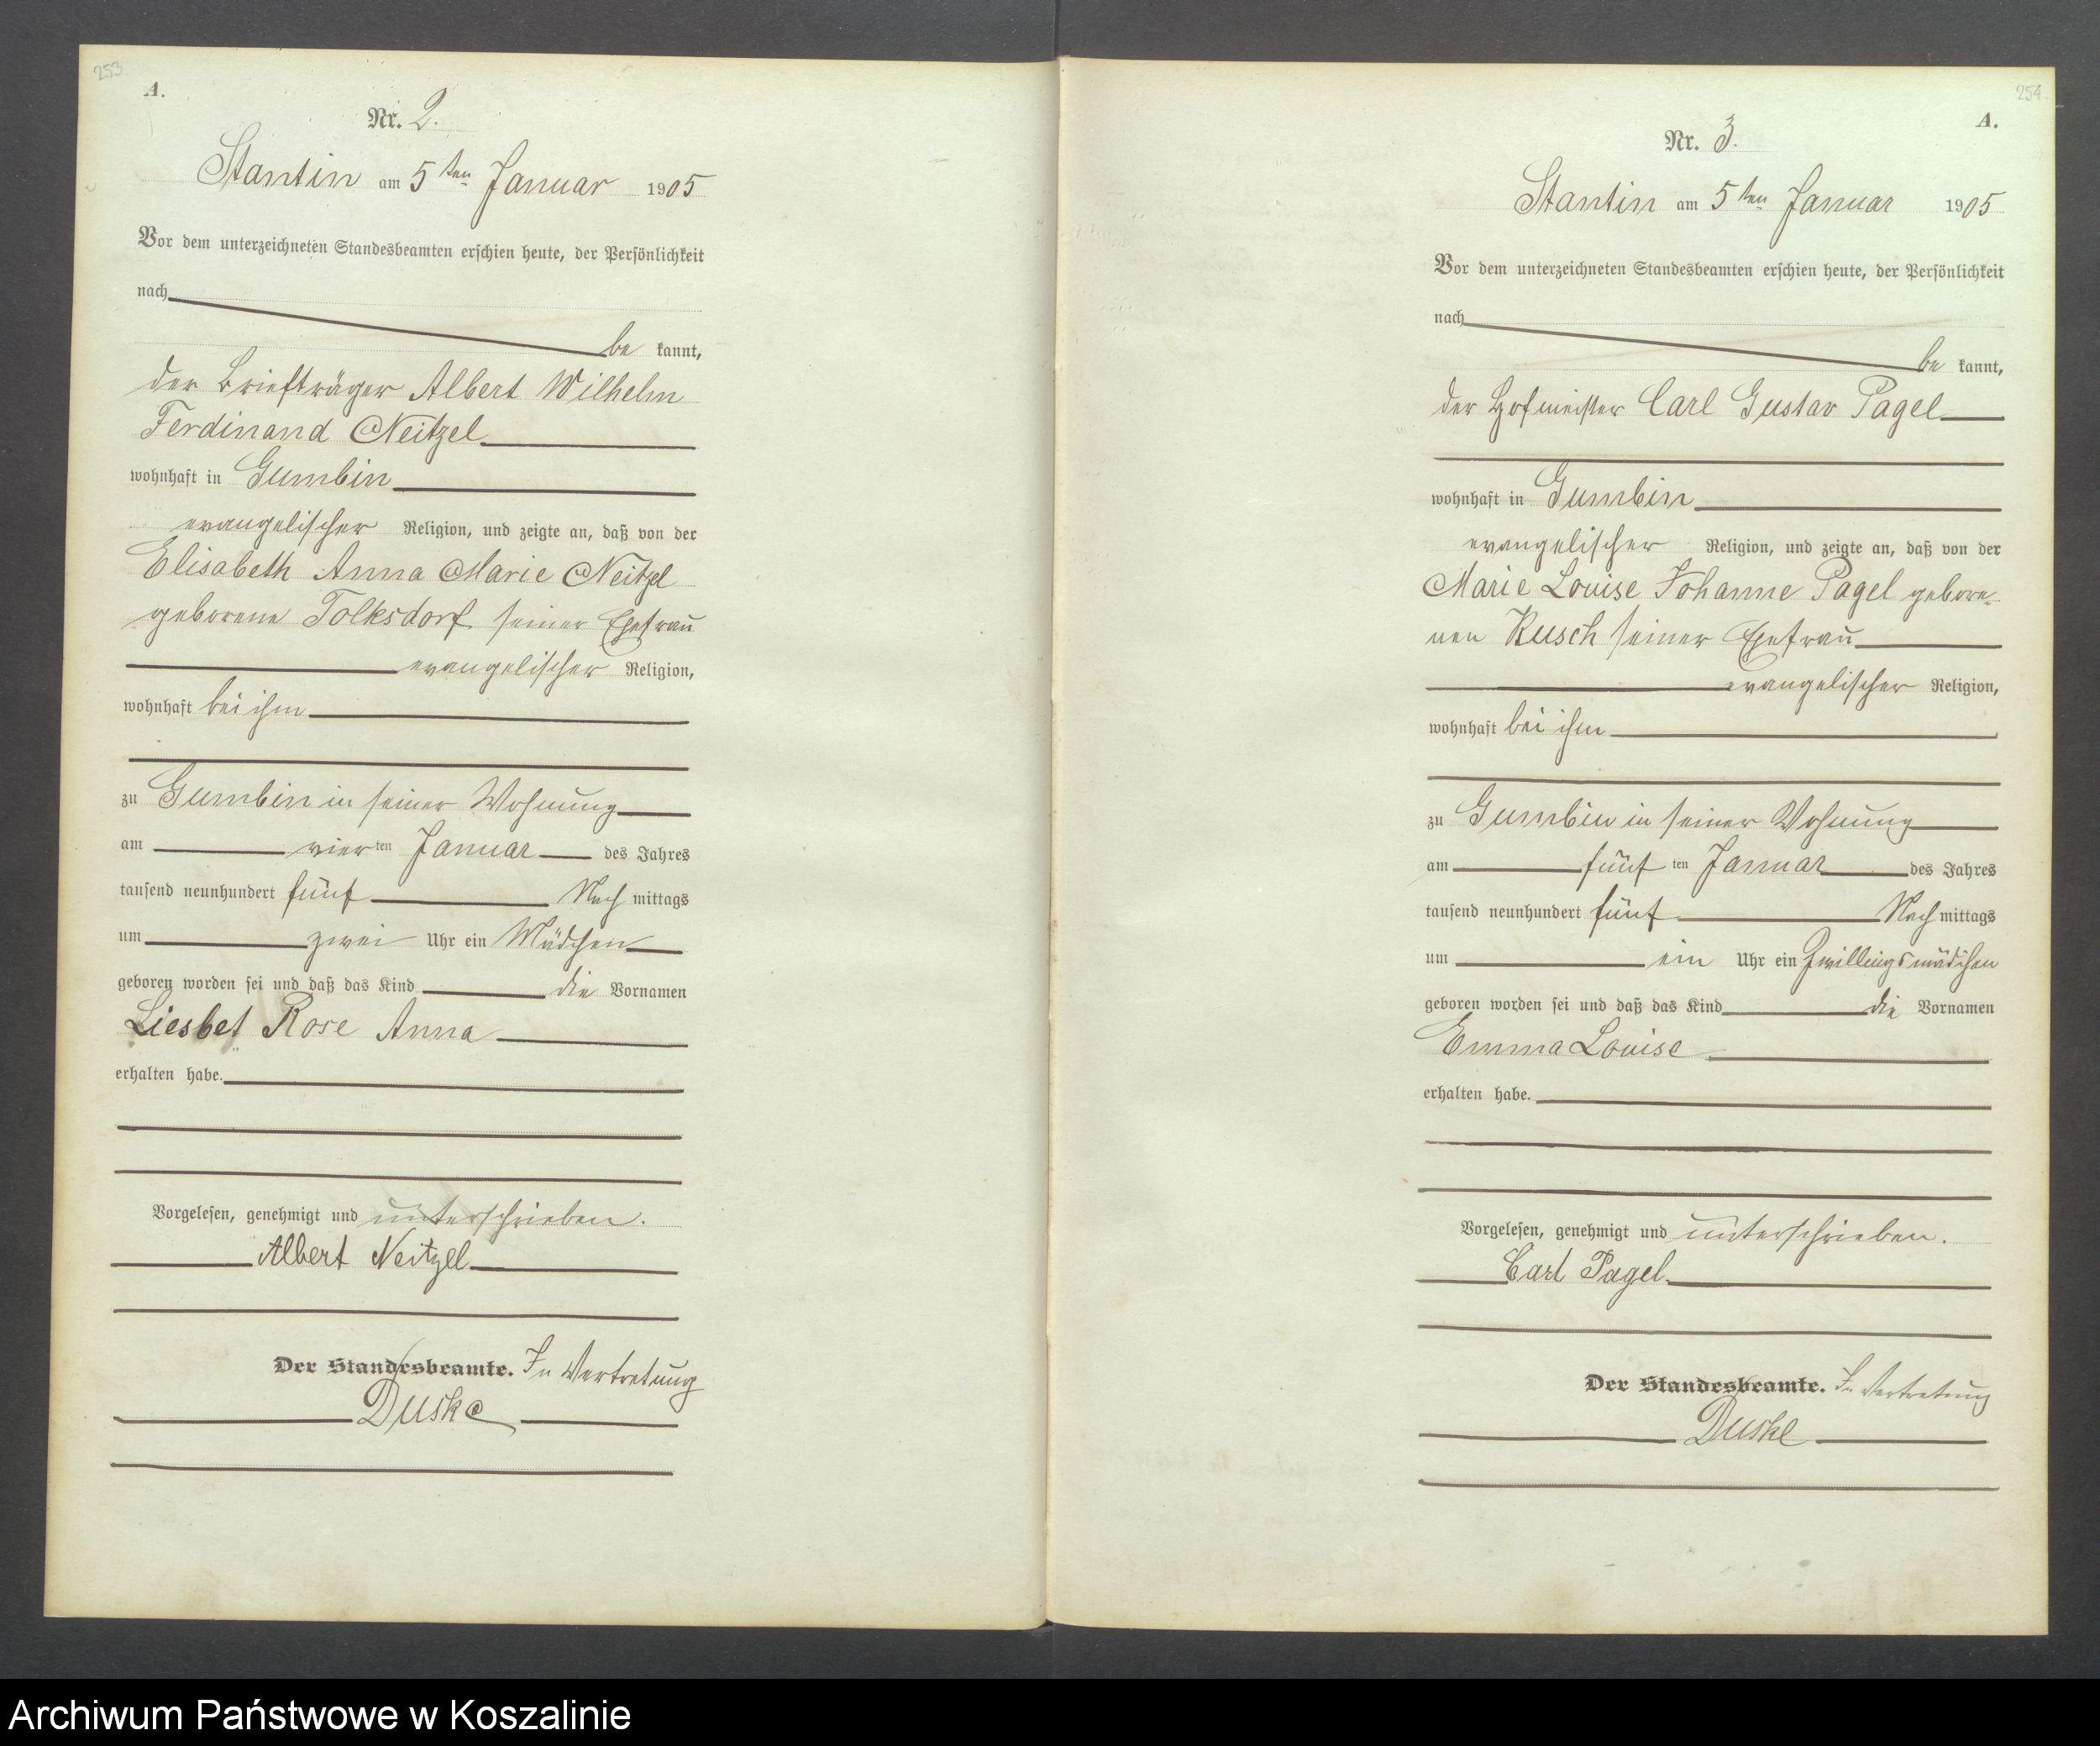 253
A.
Nr. 2.
Stantin am 5ten Januar 1905
Vor dem unterzeichneten Standesbeamten erschien heute, der Persönlichkeit
nach
be kannt,
der Briefträger Albert Wilhelm
Ferdinand Neitzel
wohnhaft in Gumbin
evangelischer Religion, und zeigte an, daß von der
Elisabeth Anna Marie Neitzel
geborene Tolksdorf seiner Ehefrau
evangelischer Religion,
wohnhaft bei ihm
zu Gumbin in seiner Wohnung
am vier ten Januar des Jahres
tausend neunhundert fünf Nach mittags
um zwei Uhr ein Mädchen
geboren worden sei und daß das Kind die Vornamen
Liesbet Rose Anna
erhalten habe.
Vorgelesen, genehmigt und unterschrieben.
Albert Neitzel
Der Standesbeamte. In Vertretung
Duske
254
A.
Nr. 3.
Stantin am 5ten Januar 1905
Vor dem unterzeichneten Standesbeamten erschien heute, der Persönlichkeit
nach
be kannt,
der Hofmeister Carl Gustav Pagel
wohnhaft in Gumbin
evangelischer Religion, und zeigte an, daß von der
Marie Louise Johanne Pagel gebore-
nen Rusch seiner Ehefrau
evangelischer Religion,
wohnhaft bei ihm
zu Gumbin in seiner Wohnung
am fünf ten Januar des Jahres
tausend neunhundert fünf Nach mittags
um ein Uhr ein Zwillingsmädchen
geboren worden sei und daß das Kind die Vornamen
Emma Louise
erhalten habe.
Vorgelesen, genehmigt und unterschrieben.
Carl Pagel.
Der Standesbeamte. In Vertretung
Duske
Archiwum Państwowe w Koszalinie